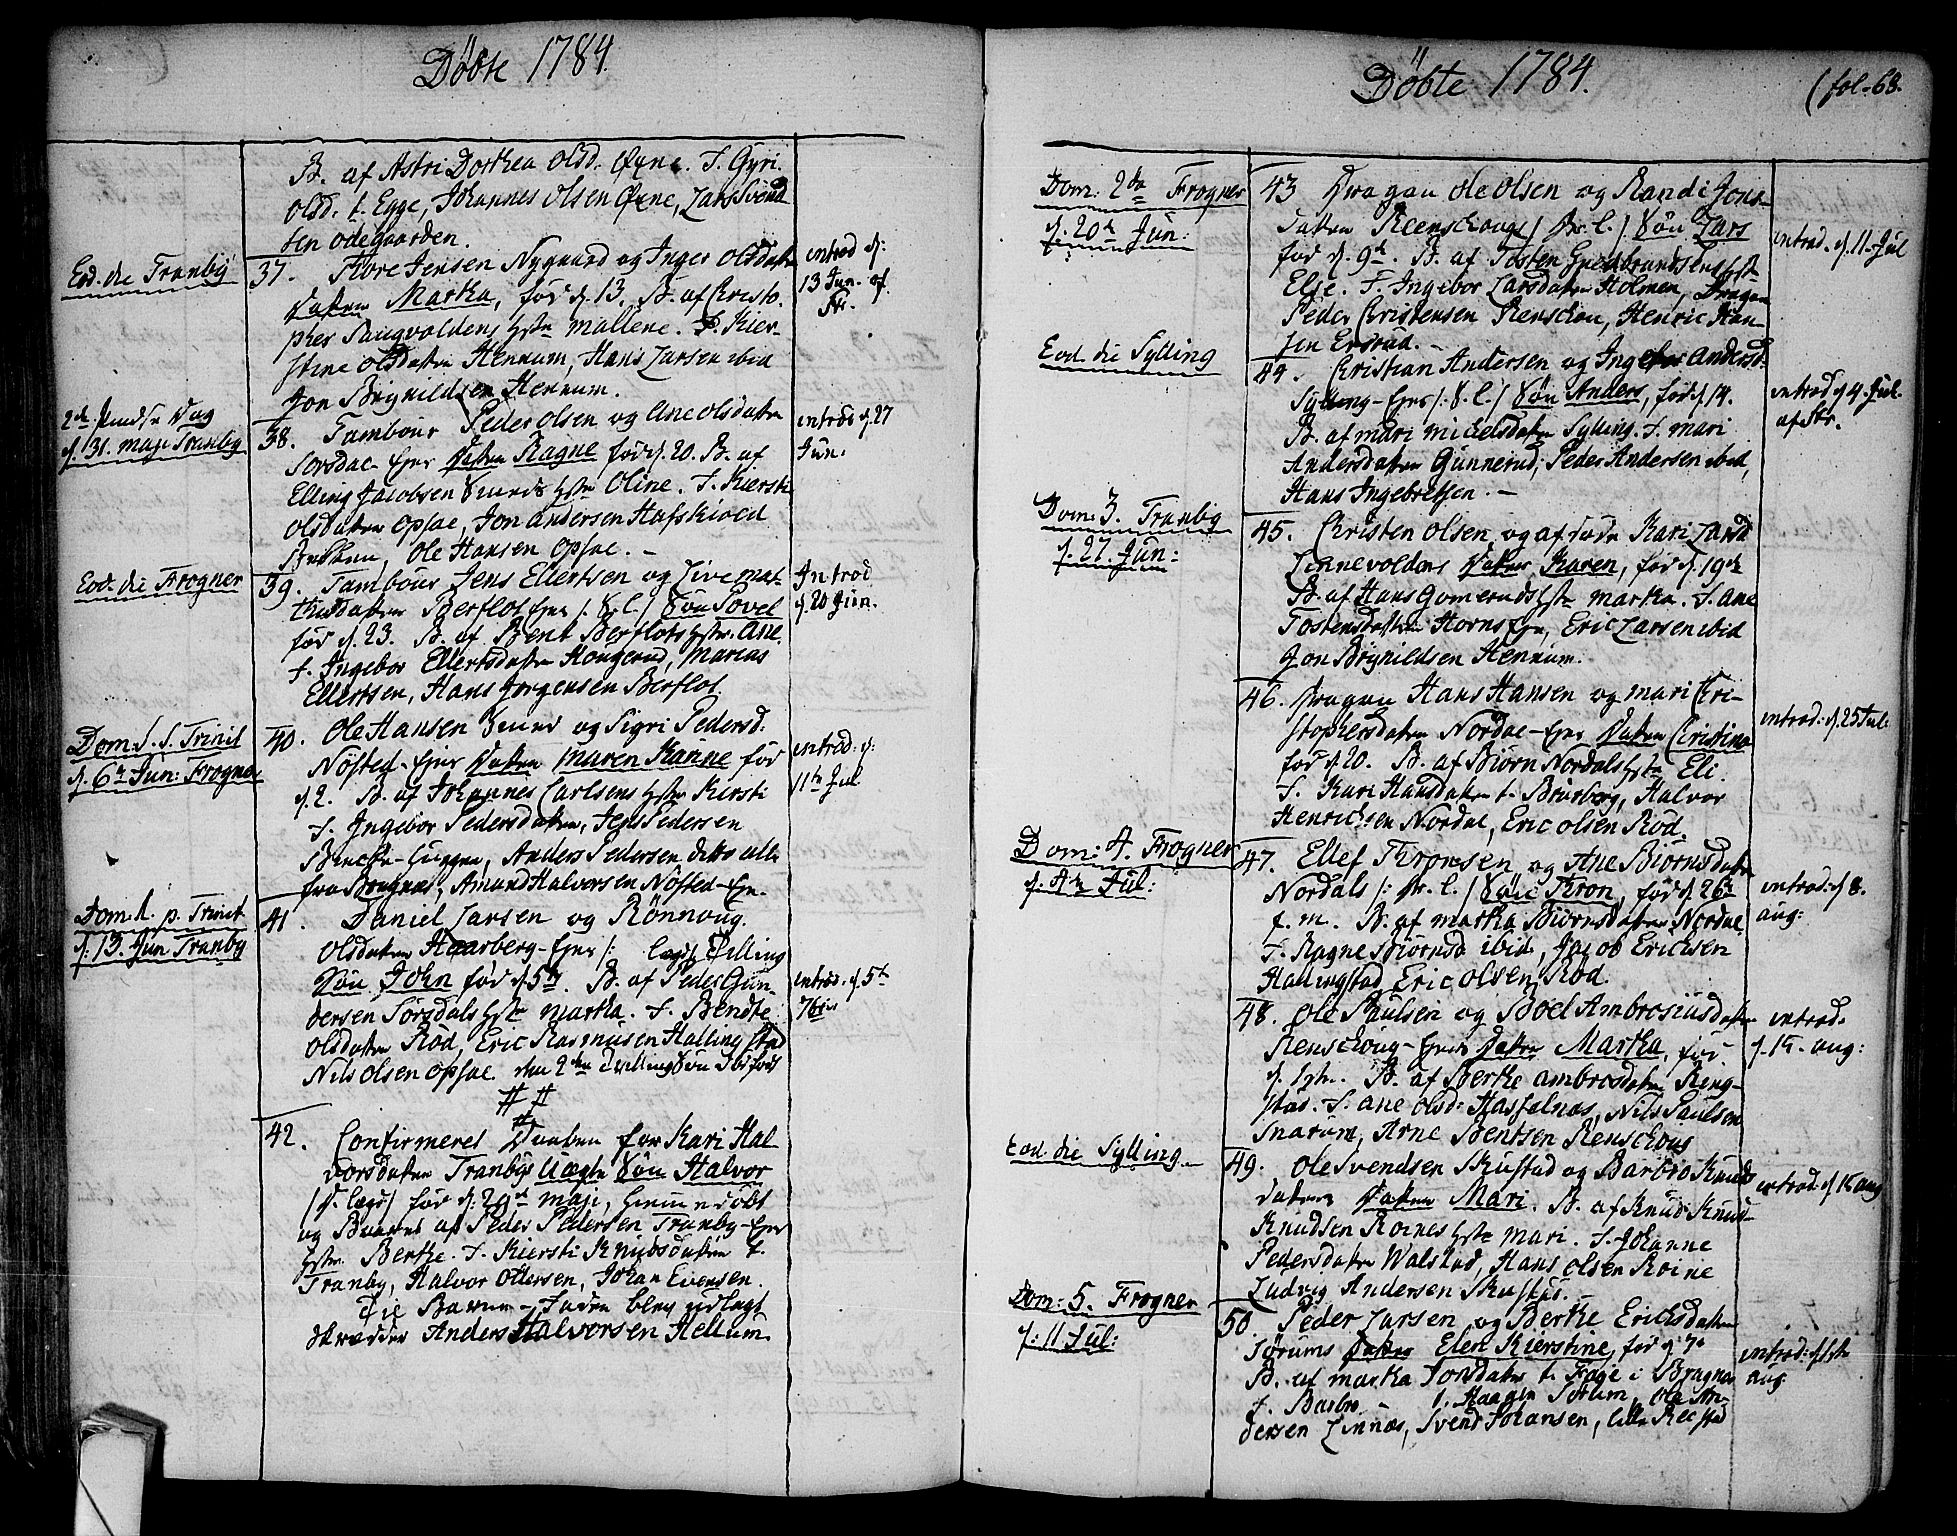 Döbte 1784.
B. af Astri Dorthea Olsd. Øxne. F. Gyri
Olsd. t. Egge, Johannes Olsen Øxne, Lars Svend
sen Ødegaarden.
Eod. die Tranby
37. Tore Jensen Nygaard og Inger Olsdatter
Datter Martha, før d. 13. B. af Christo-
pher Paugvoldens Hstr Mallene. F. Kier-
stine Olsdatter Hennum, Hans Larsen ibid
Jon Brynildsen Hennum.
introd d:
13 Jun. af
Str.
2den Pindse Dag
d. 31. Maji Tranby
38. Tambour Peder Olsen og Ane Olsdatter
Sørsdal-Ejer Datter Ragne før d. 20. B. af
Elling Jacobsen Hstr Oline. F. Kiersti
Olsdatter Opsae, Jon Andersen Hafskiold
Ole Hansen Opsae. -
introd d. 27
Jun.
Eod. die Frogner
39. Tambour Jens Ellertsen og Live Mat-
hisdatter Berflot Ejer /: /: Søn Povel
før d. 23. B. af Bent Berflots Hstr. Ane
F. Ingebor Ellertsdatter Hougerud, Marius
Ellertsen, Hans Jørgensen Berflot
Introd
d. 20 Jun.
Dom. S. S. Trinit
d. 6te Jun: Frogner
40. Ole Hansen og Sigri Pedersd.
Nøsted-Ejer Datter Maren Hanne før
d. 2. B. af Johannes Carlsens Hstr Kirsti
F. Ingebor Pedersdatter, Jens Pedersen
Anders Pedersen ditto alle
fra Bragnes, Amund Halvorsen Nøsted-Ejn.
introd: d:
11te Jul
Dom. 1. p. Trinit
d. 13. Jun Tranby
41. Daniel Larsen og Rönnoug
Olsdatter Haarberg-Ejer /: Tvilling
Søn John før d. 5te. B. af Peder Gun-
dersen Sørsdals Hstr Martha. F. Bendte
Olsdatter Röd, Eric Rasmusen Hallingstad
Nils Olsen Opsae. den 2den Tvilling Søn
introd. d. 5te
7br
# #
#
42. Confirmeret Daaben for Kari Hal
vorsdatter Tranbys Uægte Søn Halvor
før d. 29de Maji, hiemmedøbt
og Baaret af Peder Pedersen Tranby-Ejer
Hstr. Berthe. F. Kiersti Knudsdatter t.
Tranby, Halvor Ottersen, Johan Evensen.
Til Barne-Fader blev udlagt
Skrædder Anders Halvorsen Hellum.
Döbte 1784.
(fol-68.
Dom: 2da Frogner
d. 20de Jun:
43 Dragon Ole Olsen og Randi Jons-
datter Reenschougs Søn Lars
før d. 9de. B. af Tosten Gulbrandsens Hstr
Elje. F. Ingebor Larsdatter Holmen, Dragon
Peder Christensen Renschou, Henric Han-
sen Ensrud. -
introd. d. 11. Jul
Eod die Sylling
44. Christian Andersen og Ingebor Andersd
Sylling-Ejer Søn Anders, før d. 14.
B. af Mari Michelsdatter Sylling. F. Mari
Andersdatter Gunnerud, Peder Andersen ibid,
Hans Ingebretsen. -
introd d. 4. Jul.
af Str.
Dom: 3. Tranby
d. 27 Jun:
45. Christen Olsen, og Kari Larsd
Linnevoldens Datter Karen, før d. 19de
B. af Hans Gomeruds Hstr Martha. F. Ane
Tostensdatter Horns Ejn, Eric Larsen ibid
Jon Brynildsen Hennum.
46. Dragon Hans Hansen og Mari Chri-
stophersdatter Nordal-Ejer Datter Christina
før d. 20. B. af Biörn Nordals Hstr Eli.
F. Kari Hansdatter t. Braaberg, Halvor
Henrichsen Nordal, Eric Olsen Röd.
introd: d. 25 Jul:
Dom: 4. Frogner
d. 4de Jul:
47. Ellef Thronsen og Ane Biörnsdatter
Nordals Søn Thron, før d. 26de
f. m. B. af Martha Biörnsdatter Nordal
F. Ragne Biörnsd ibid, Jacob Ericksen
Hallingstad Eric Olsen Röd.
introd: d 8.
aug:
48. Ole Paulsen og Boel Ambrosiusdatter
Renschoug-Ejer Datter Martha, før
d. 1ste. B. af Berthe Ambrosdatter Ring-
stad. F. Ane Olsd: Hasselnæs, Nils Paulsen
Snarum, Arne Bentsen Renschoug
introd.
d. 15. aug:
Eod die Sylling -
49. Ole Svendsen Skustad og Barbro Knuds
datter Datter Mari. B. af Knud Knud-
Knudsen Roines Hstr Mari. F. Johanne
Pedersdatter Walstad, Hans Olsen Roine
Ludvig Andersen
introd: d 15 aug
Dom: 5. Frogner
d: 11 Jul:
50. Peder Larsen og Berthe Ericksdatter
Jørums Datter Elen Kierstine, før d. 7de
B. af Martha Jorsdatter t. Foje i Bragnæs
F. Barbro - Haagen Sørum, Ole An-
dersen Linnæs, Svend Johansen, Lille Restad
introd: d 1ste
aug